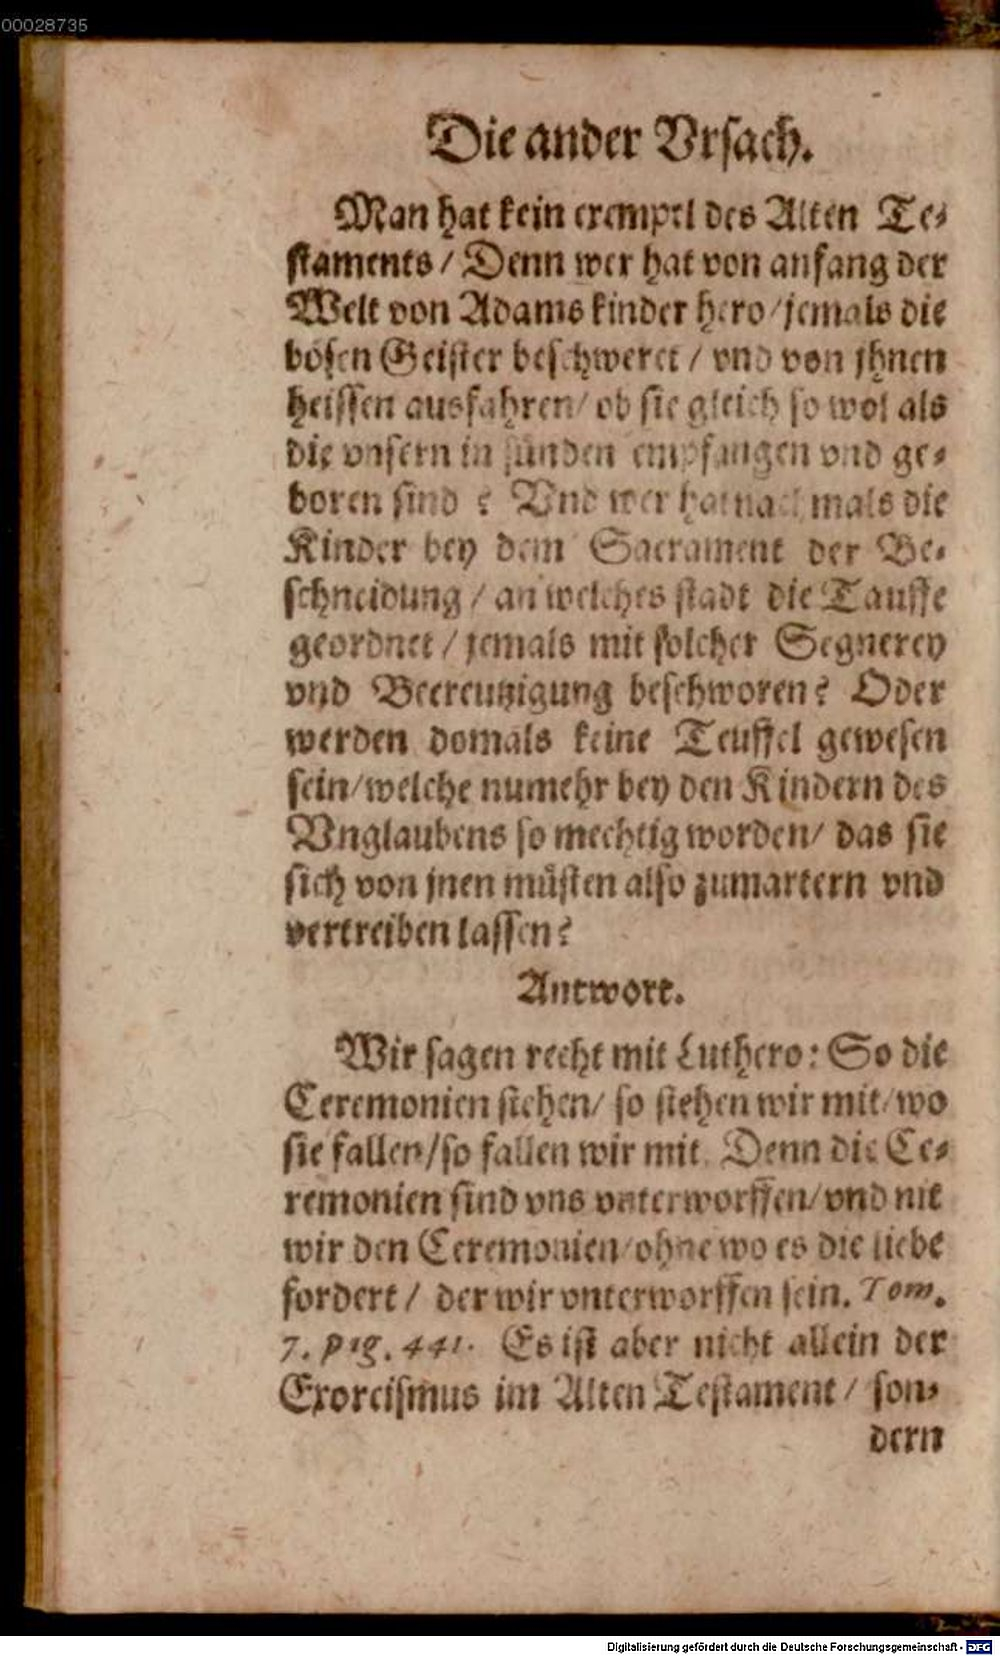 00028735
Die ander Vrſach.
Man hat kein exempel des Alten Te⸗
ſtaments / Denn wer hat von anfang der
Welt von Adams kinder hero / jemals die
böſen Geiſter beſchweret / vnd von jhnen
heiſſen ausfahren / ob ſie gleich ſo wol als
die vnſern in ſünden empfangen vnd ge⸗
boren ſind ? Vnd wer hat nachmals die
Kinder bey dem Sacrament der Be⸗
ſchneidung / an welches ſtadt die Tauffe
geordnet / jemals mit ſolcher Segnerey
vnd Beereutzigung beſchworen? Oder
werden domals keine Teuffel geweſen
ſein / welche numehr bey den Kindern des
Vnglaubens ſo mechtig worden / das ſie
ſich von jnen müſten alſo zumartern vnd
vertreiben laſſen?
Antwort.
Wir ſagen recht mit Luthero: So die
Ceremonien ſtehen / ſo ſtehen wir mit / wo
ſie fallen / ſo fallen wir mit. Denn die Ce⸗
remonien ſind vns vnterworffen / vnd nit
wir den Ceremonien / ohne wo es die liebe
fordert / der wir vnterworffen ſein. Tom.
7. pag. 441. Es iſt aber nicht allein der
Exorciſmus im Alten Teſtament / ſon⸗
dern
Digitalisierung gefördert durch die Deutsche Forschungsgemeinschaft - DFG